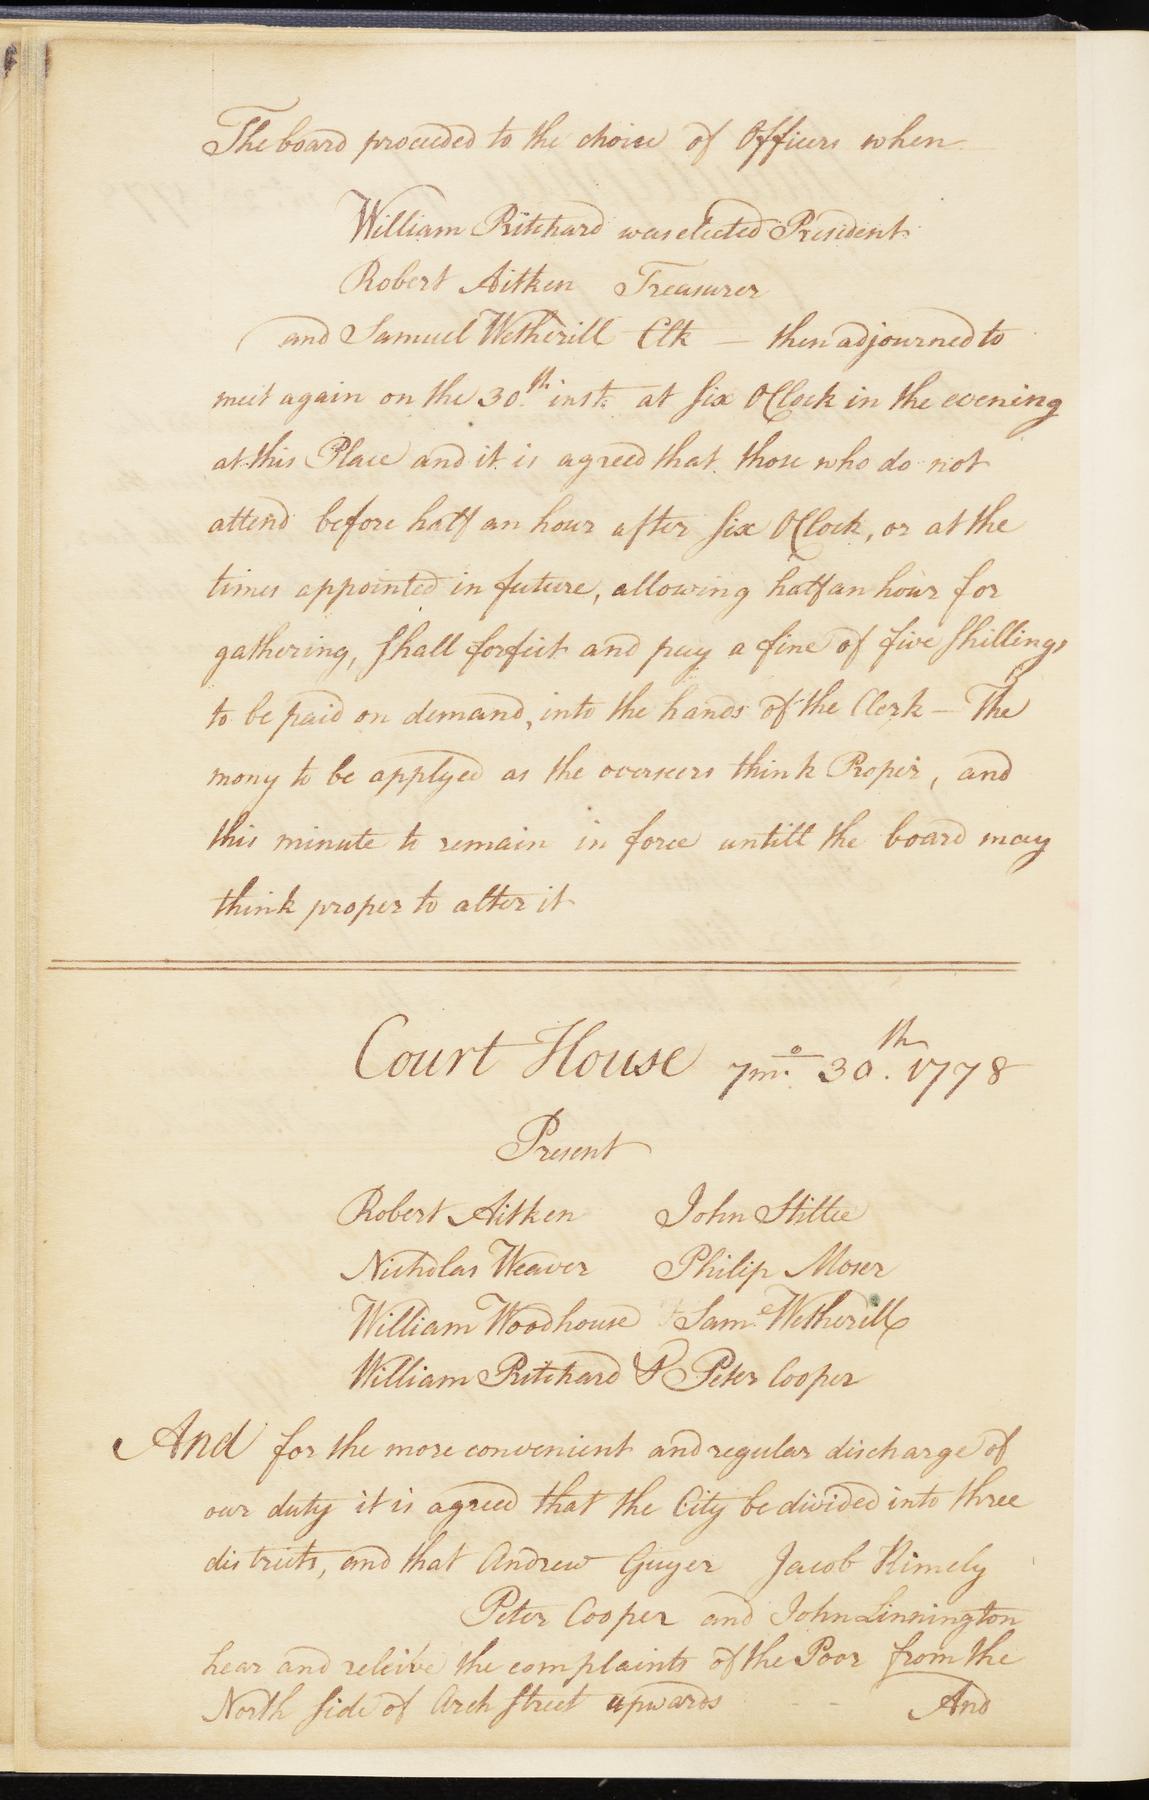 The board proceeded to the choice of Officers when
William Pritchard was elected President
Robert Aitken Treasurer
and Samuel Wetherill Clk — then adjourned to
meet again on the 30th. inst: at six OClock in the evening
at this Place and it is agreed that those who do not
attend before half an hour after six OClock, or at the
times appointed in future, allowing half an hour for
gathering, shall forfeit and pay a fine of five shillings
to be paid on demand, into the hands of the Clerk — The
mony to be applyed as the overseers think Proper, and
this minute to remain in force untill the board may
think proper to alter it
Court House 7mo. 30th. 1778
Present
Robert Aitken John Stille
Nicholas Weaver Philip Moser
William Woodhouse Saml. Wetherill
William Pritchard P Peter Cooper
And for the more convenient and regular discharge of
our duty it is agreed that the City be divided into three
districts, and that Andrew Guyer Jacob Kimely
Peter Cooper and John Linnington
hear and releive the complaints of the Poor from the
North side of Arch street upwards And